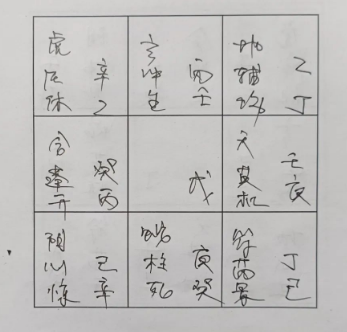 虎 玄 地
任 辛 冲 丙 辅 乙
休 乙 生 壬 伤 丁
合 天
蓬 癸 英 壬
开 丙 戊 杜 庚
阴 蛇 符
心 己 柱 庚 芮 丁
惊 辛 死 癸 景 己